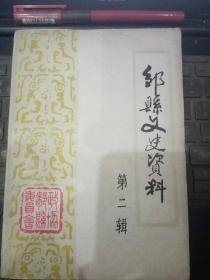 邹縣文史資料
第二辑